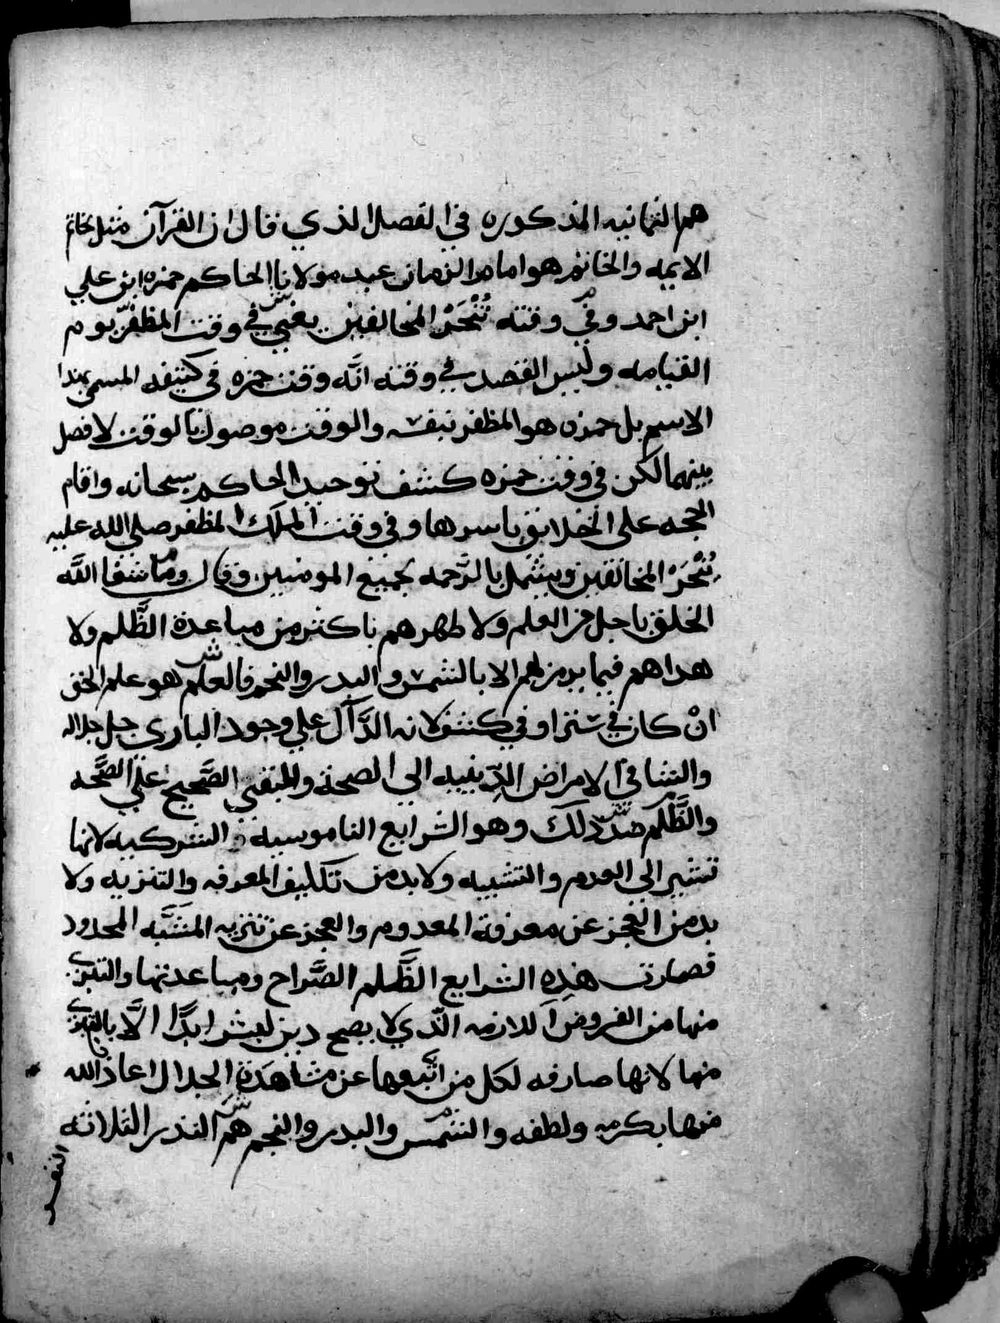 هم الثمانيه المذكوره في الفصل الذي قال ان القرآن مثل بخاتم
الايمه والخاتم هو امام الزمان عبد مولانا الحاكم حمزه ابن علي
ابن احمد وفي وقته تُنْحَرُ المخالفين يعني في وقت المظفر يوم
القيامه وليس القصد في وقته انَّه وقت حمزه في كشفه المسمى بهذا
الاسم بل حمزه هو المظفر بنفسه والوقت موصول بالوقت لا فصل
بينهما لكن في وقت حمزه كشف توحيد الحاكم سبحانه واقام
الحجه على الخلايق باسرها وفي وقت الملك المظفر صلى الله عليه
تُنْحَرُ المخالفين ويشمل بالرَّحمه لجميع المومنين وقال وما شفا اللَّه
الخلق باجل من العلم ولا طهرهم باكثر من مباعدة الظَّلم ولا
هداهم فيما يرمز لهم الا بالشمس والبدر والنجم فالعلم هو علم الحق
انْ كان في ستر او في كشف لانه الدَّال علي وجود الباري جل جلاله
والشافي الامراض الدينيه الي الصحة والمبقي الصَّحيح علي الصحَّه
والظَّلم ضدّ ذلك وهو الشرايع الناموسيه والشركيه لانها
تشير الى العدم والتشبيه ولابد من تكليف المعرفه والتنزيه ولا
بد من العجز عن معرفة المعدوم والعجز عن تنزيه المشبَّه المحدود
فصارت هذه الشرايع الظَّلم الصَّراح ومباعدتها والتبري
منها من الفروض اللازمه الَّذي لا يصح دين لبشر ابدًا الَّا بالتبري
منها لانها صارفه لكل من اتَّبعها عن مشاهدة الجلال اعاذنا الله
منها بكرمه ولطفه والشمس والبدر والنجم هم النذر الثلاثه